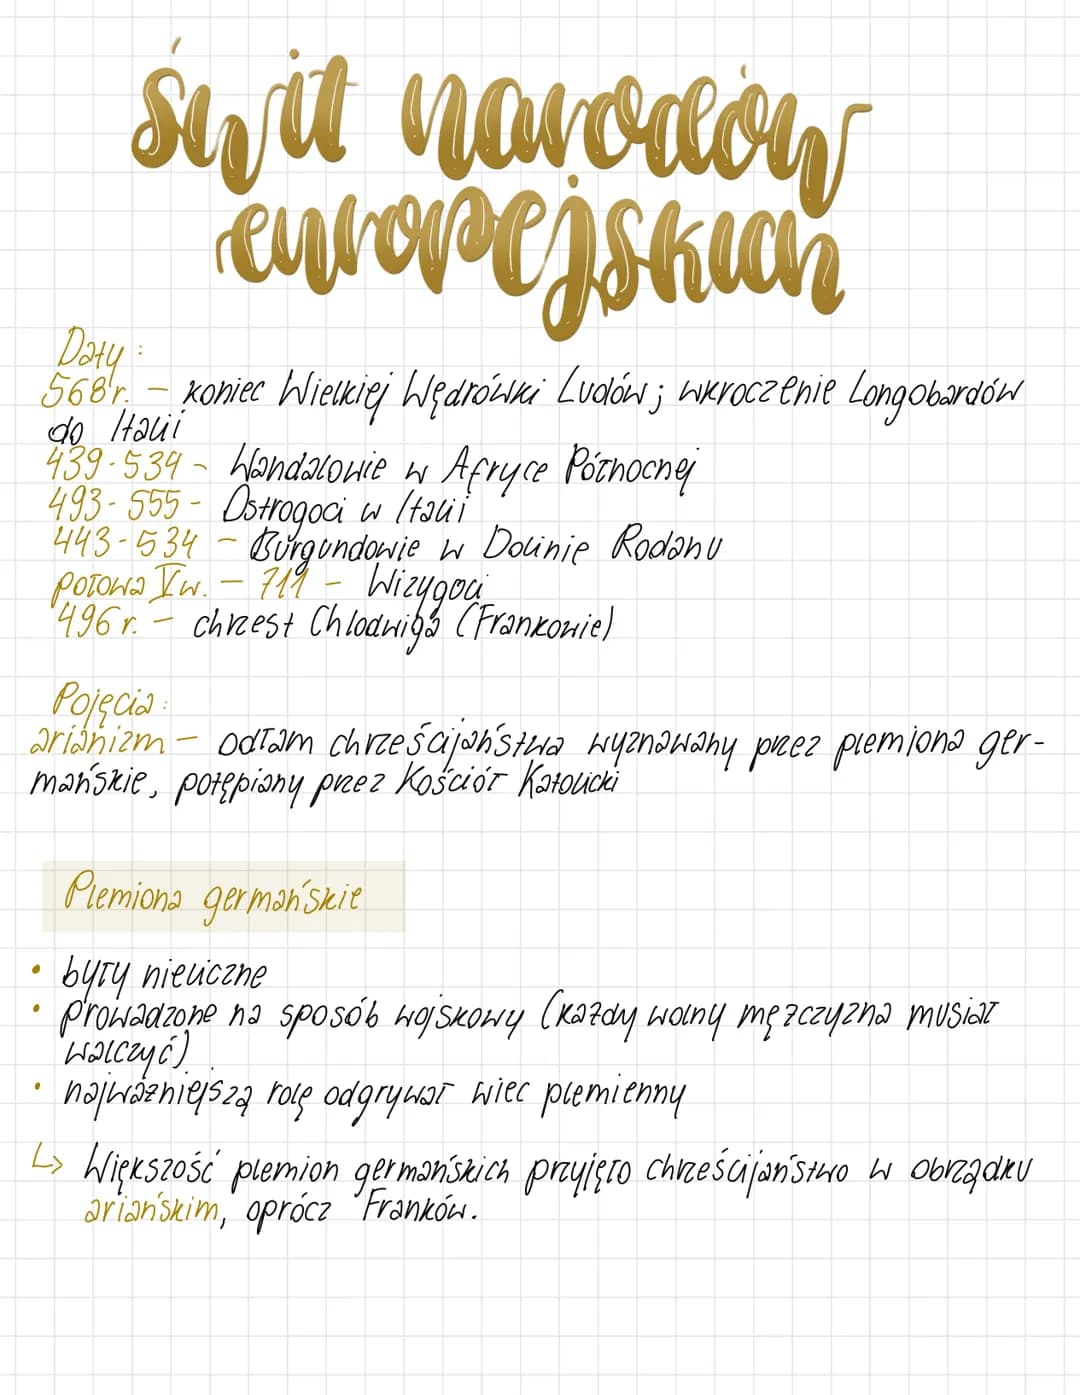 świt narodów
europejskich
Daty:
568 r. – koniec Wielkiej Wędrówki Ludów; wkroczenie Longobardów
do Italii
439-534 - Wandalowie w Afryce Północnej
493-555 - Ostrogoci w Italii
443-534 - Burgundowie w Dolinie Rodanu
połowa V w. – 711 - Wizygoci
496 r. – chrzest Chlodwiga (Frankowie)
Pojęcia:
arianizm – odłam chrześcijaństwa wyznawany przez plemiona ger-
mańskie, potępiany przez Kościół Katolicki
Plemiona germańskie
• były nieliczne
• prowadzone na sposób wojskowy (każdy wolny mężczyzna musiał
walczyć)
• najważniejszą rolę odgrywał wiec plemienny
↳ Większość plemion germańskich przyjęło chrześcijaństwo w obrządku
ariańskim, oprócz Franków.